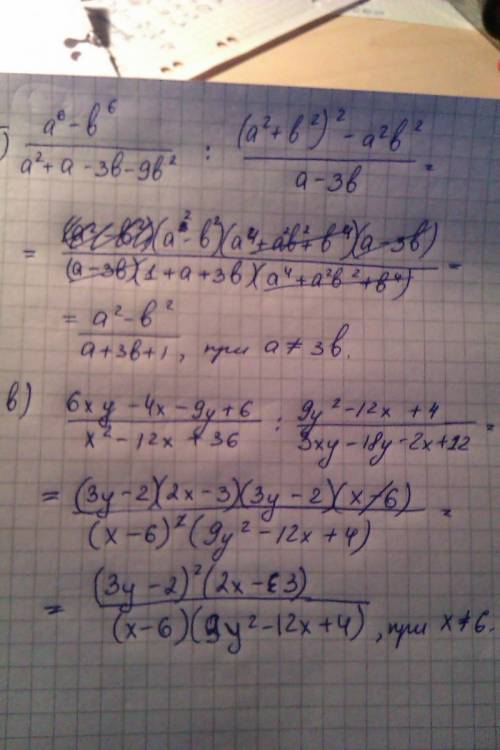 ) a⁶ - b⁶ / a² + a - 3b - 9b² : (a² + b²)² - a²b² / a - 3b =
= (a² - b²)(a⁴ + a²b² + b⁴)(a - 3b) / (a - 3b)(1 + a + 3b)(a⁴ + a²b² + b⁴) =
= a² - b² / a + 3b + 1, при a ≠ 3b.
в) 6xy - 4x - 9y + 6 / x² - 12x + 36 : 9y² - 12x + 4 / 3xy - 18y - 2x + 12 =
= (3y - 2)(2x - 3)(3y - 2)(x - 6) / (x - 6)²(9y² - 12x + 4) =
= (3y - 2)²(2x - 3) / (x - 6)(9y² - 12x + 4), при x ≠ 6.